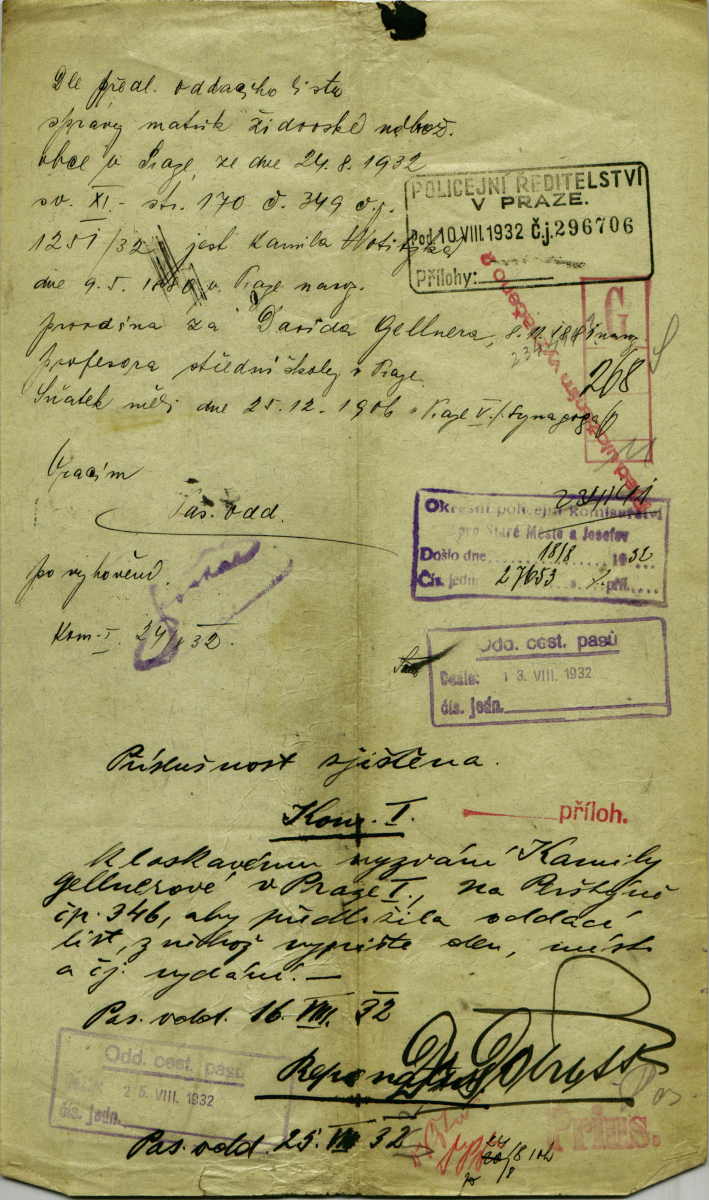 Dle předl. oddacího listu
správy matrik židovské nábož.
obce v Praze, ze dne 24.8.1932
sv. XI.- str. 170 č. 349 č.j.
1251/32 jest Kamila
dne 9.5. v Praze naroz.
provdána za Davida Gellnera, 8.11.1881 naroz
profesora střední školy v Praze.
Sňatek měli dne 25.12.1906 v Praze V./Synagoga/
POLICEJNÍ ŘEDITELSTVÍ
V PRAZE.
Pod. 10 VIII. 1932 č.j. 296706
Přílohy:
G
268
Vracím
Pas. odd.
po vyhovění.
Kom. I. 32.
Okresní policejní komisařství
pro Staré Město a Josefov
Došlo dne 18/8 1932
Čís. jedn. 27653 příl.
Odd. cest. pasů
Došlo: 13. VIII. 1932
čís. jedn.
Příslušnost zjištěna.
Kom. I.
příloh.
k laskavému vyzvání Kamily
Gellnerové v Praze I., na Perštýně
čp. 346, aby předložila oddací
list, z něhož vypište den, místo
a čj. vydání.—
Pas. odd. 16. VIII. 32
Odd. cest. pasů
Došlo: 25. VIII. 1932
čís. jedn.
Pas. odd. 25. VIII 32